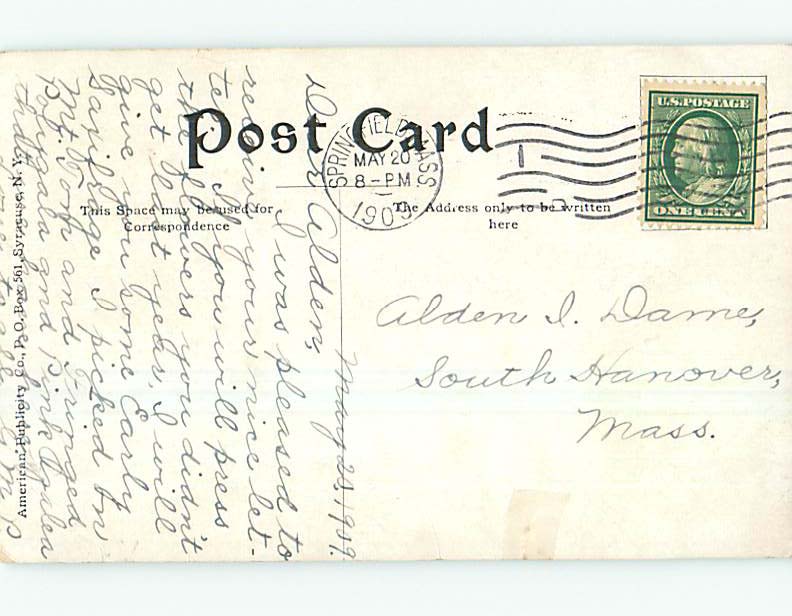 Post Card
SPRINGFIELD, MASS.
MAY 20
8 - PM
1909
U.S. POSTAGE
ONE CENT
This Space may be used for
Correspondence
The Address only to be written
here
Alden I. Dame,
South Hanover,
Mass.
American Publicity Co., P. O. Box 561, Syracuse, N. Y.
May 20, 1909.
Dear Alden,
I was pleased to
receive your nice let-
ter. If you will press
the flowers you didn't
get last year, I will
give you some Early
Saxifrage I picked on
Mt. Tom and Fringed
Polygala and Pink Azalea